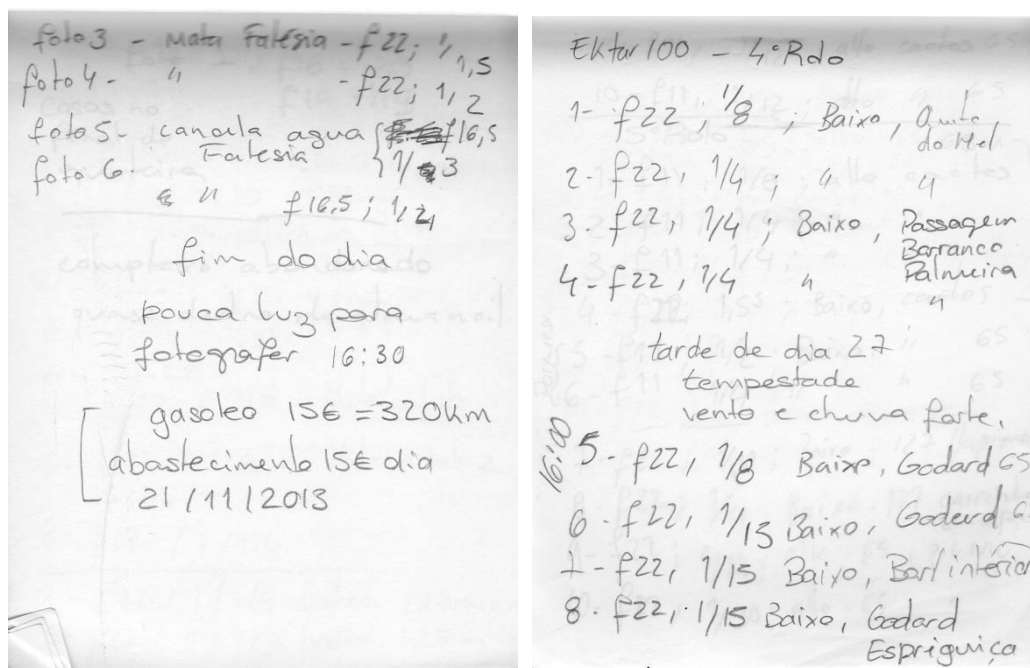 foto 3 - Mata Falésia - f22; 1/1,5
foto 4 - " - f22; 1/2
foto 5 - canoula agua f16,5
Falesia 1/3
foto 6
" f16,5; 1/2
fim do dia
pouca luz para
fotografar 16:30
gasoleo 15€ = 320km
abastecimento 15€ dia
21/11/2013
Ektar 100 - 4º Rdo
1- f22; 1/8; Baixo, Quinta
do Mel
2- f22, 1/4; " "
3- f22, 1/4; Baixo, Passagem
Barranco
4- f22, 1/4 " Palmeira
"
tarde de dia 27
tempestade
vento e chuva forte.
16:00
5- f22, 1/8 Baixo, Godard 65
6- f22, 1/15 Baixo, Godard
7- f22, 1/15 Baixo, Bar/interior
8- f22, 1/15 Baixo, Godard
Espriguiça